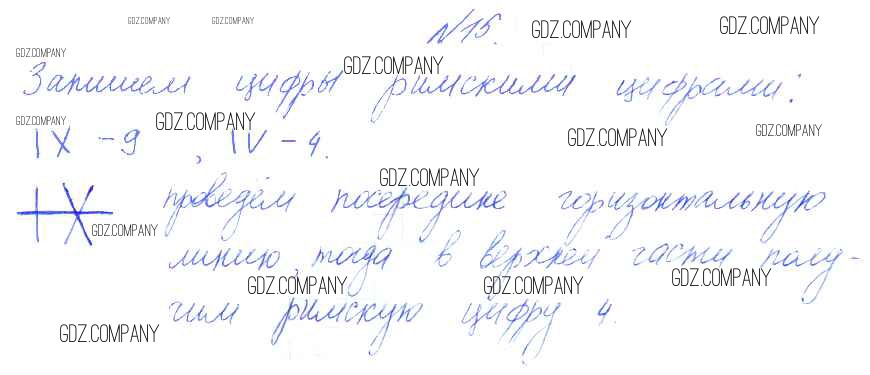 №15.
Запишем цифры римскими цифрами:
IX - 9, IV - 4.
IX проведём посередине горизонтальную
линию, тогда в верхней части полу-
чим римскую цифру 4.
GDZ.COMPANY GDZ.COMPANY GDZ.COMPANY GDZ.COMPANY
GDZ.COMPANY GDZ.COMPANY
GDZ.COMPANY GDZ.COMPANY GDZ.COMPANY GDZ.COMPANY
GDZ.COMPANY
GDZ.COMPANY
GDZ.COMPANY GDZ.COMPANY GDZ.COMPANY
GDZ.COMPANY